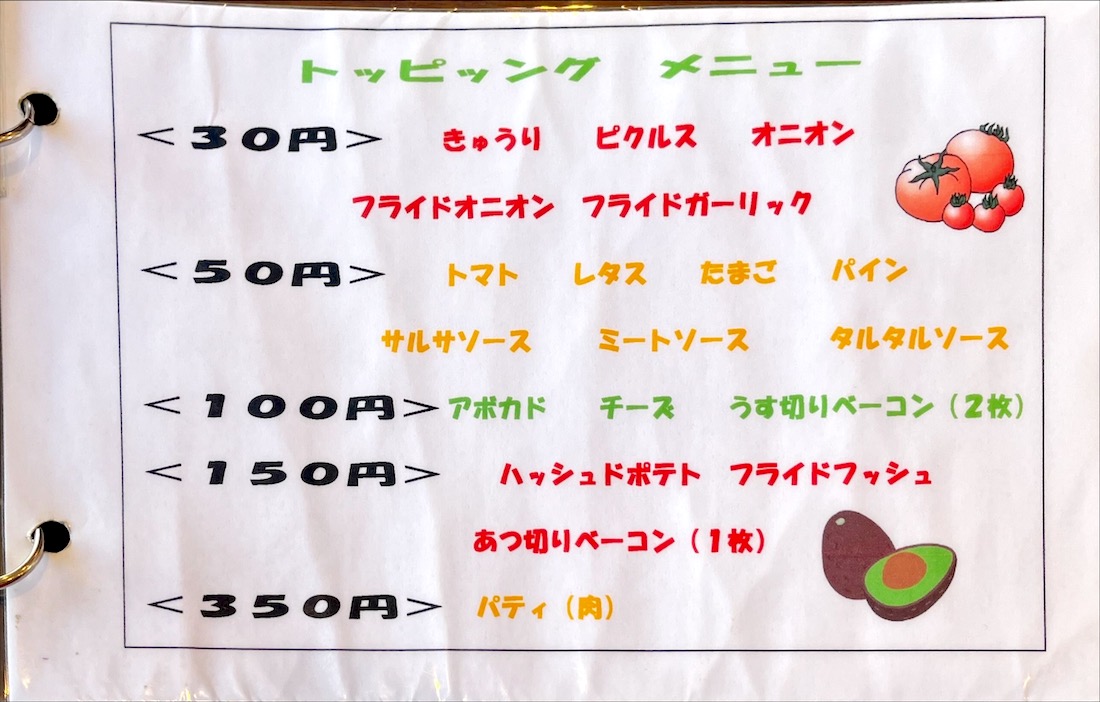 トッピッング　メニュー
＜30円＞　きゅうり　ピクルス　オニオン
フライドオニオン　フライドガーリック
＜50円＞　トマト　レタス　たまご　パイン
サルサソース　ミートソース　タルタルソース
＜100円＞アボカド　チーズ　うす切りベーコン（2枚）
＜150円＞　ハッシュドポテト　フライドフッシュ
あつ切りベーコン（1枚）
＜350円＞　パティ（肉）